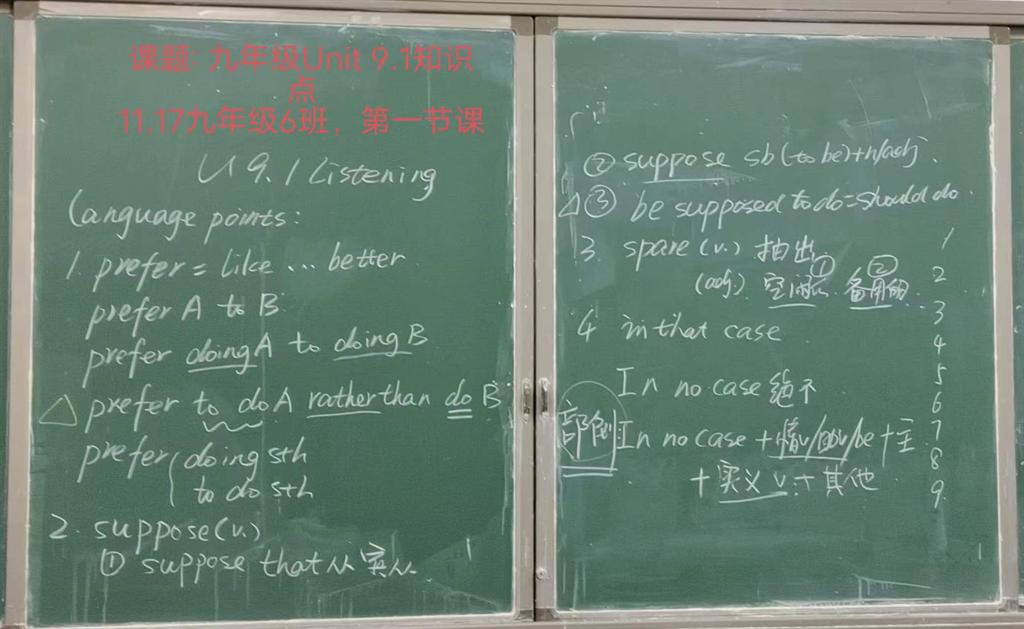 课题: 九年级Unit 9.1知识
点
11.17九年级6班，第一节课
U 9.1 Listening
Language points:
1. prefer = like ... better
prefer A to B
prefer doing A to doing B
△ prefer to do A rather than do B
prefer doing sth
to do sth
2. suppose (v.)
① suppose that从 宾从
② suppose sb (to be)+n/adj.
△ ③ be supposed to do = should do.
3. spare (v.) 抽出
(adj.) 空闲的① 备用的②
4 in that case
In no case 绝不
部倒 In no case + 情v/助v/be + 主
+ 实义 v. + 其他
1
2
3
4
5
6
7
8
9